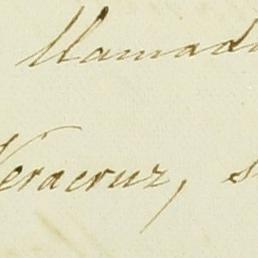 llamad
Veracruz, s